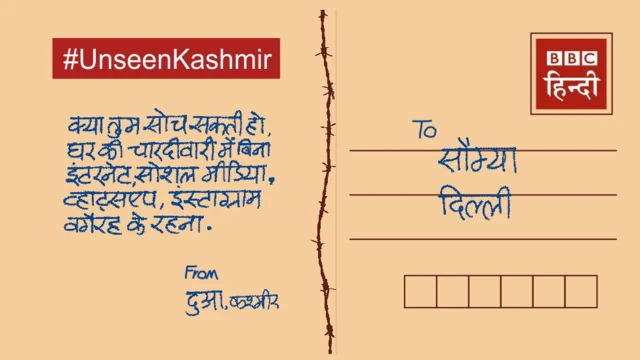 #UnseenKashmir
क्या तुम सोच सकती हो,
घर की चारदीवारी में बिना
इंटरनेट, सोशल मीडिया,
व्हाट्सएप, इंस्टाग्राम
वगैरह के रहना.
From
दुआ, कश्मीर
BBC
हिन्दी
To
सौम्या
दिल्ली